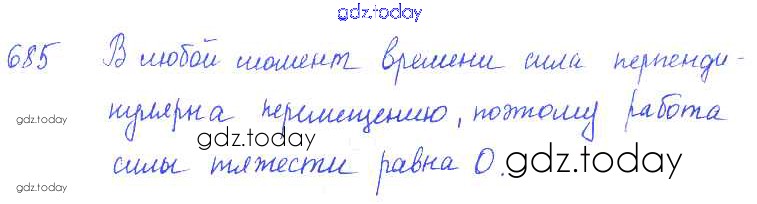 gdz.today
685 В любой момент времени сила перпенди-
gdz.today
кулярна перемещению, поэтому работа
gdz.today
силы тяжести равна 0.
gdz.today
gdz.today